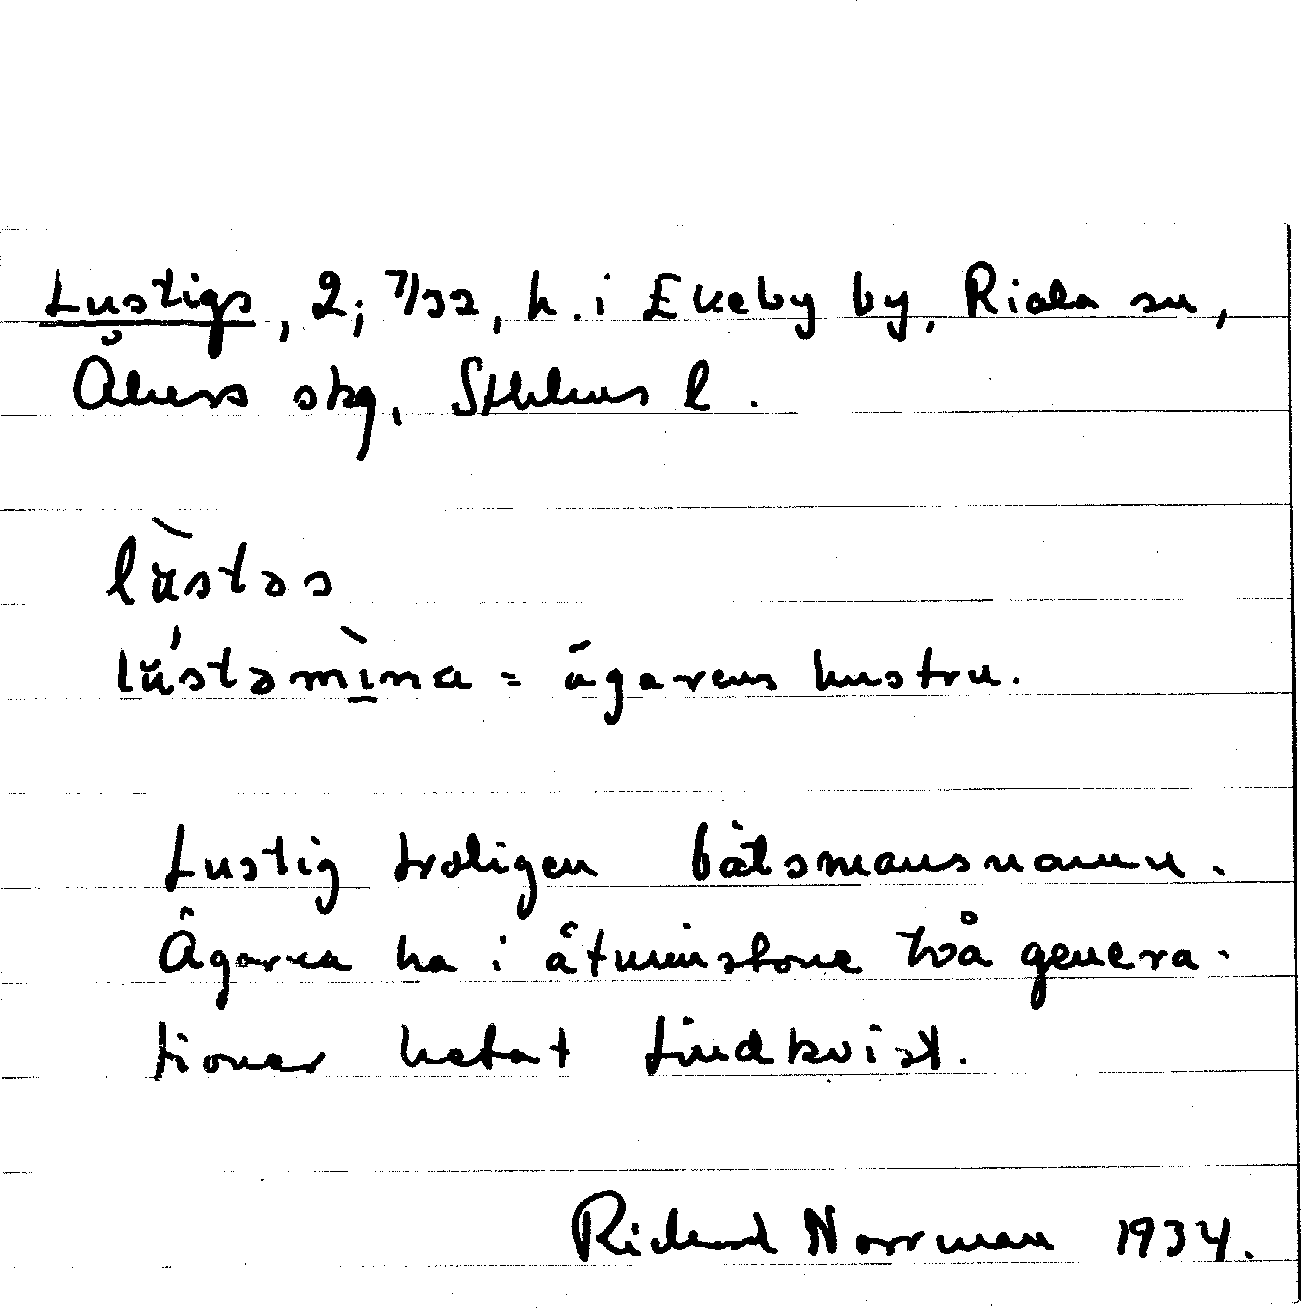 Lustigs, 2; 7/32, h. i Ekeby by, Riala sn,
Åkers skg, Sthlms l.
lùstəs
lústəmìna = ägarens hustru.
Lustig troligen båtsmansnamn.
Ägarna ha i åtminstone två genera-
tioner hetat Lindkvist.
Richard Norrman 1934.